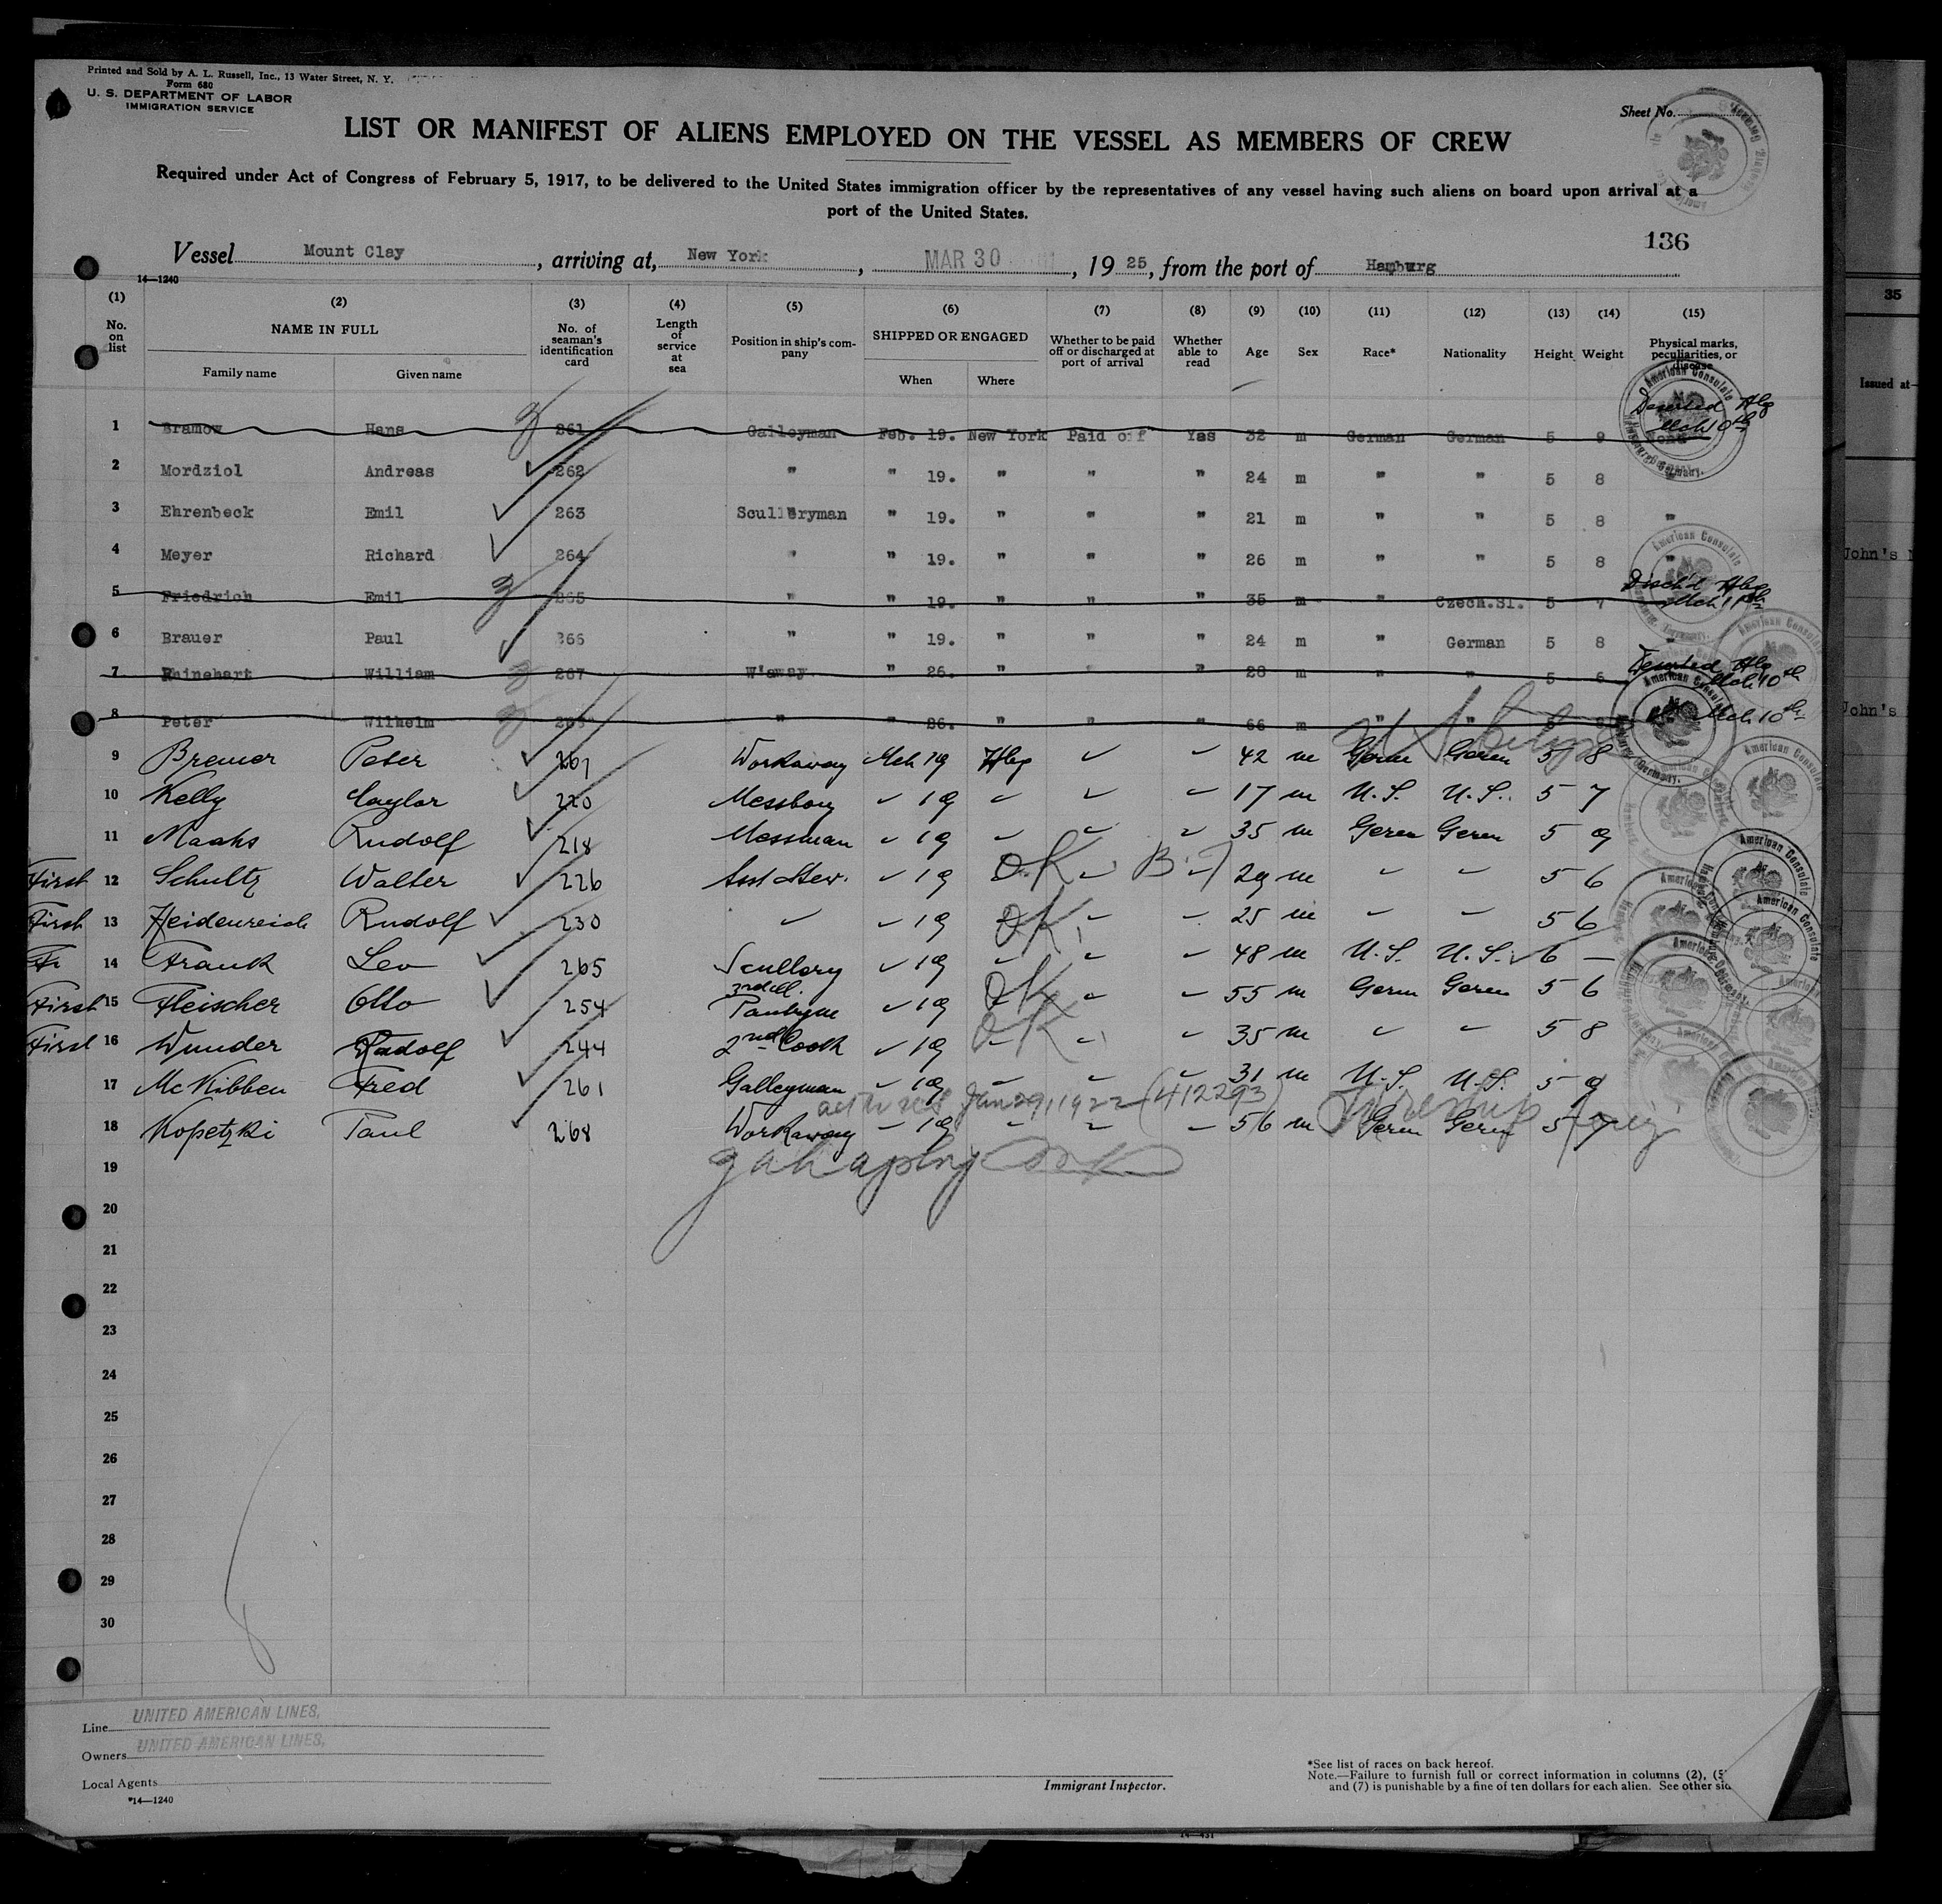 Printed and Sold by A. L. Russell, Inc., 13 Water Street, N. Y.
Form 680
U. S. DEPARTMENT OF LABOR
IMMIGRATION SERVICE
Sheet No.
LIST OR MANIFEST OF ALIENS EMPLOYED ON THE VESSEL AS MEMBERS OF CREW
Required under Act of Congress of February 5, 1917, to be delivered to the United States immigration officer by the representatives of any vessel having such aliens on board upon arrival at a
port of the United States.
136
Vessel Mount Clay, arriving at, New York, MAR 30, 19 25, from the port of Hamburg
14—1240
(1) (2) (3) (4) (5) (6) (7) (8) (9) (10) (11) (12) (13) (14) (15)
No. on list NAME IN FULL Family name Given name No. of seaman's identification card Length of service at sea Position in ship's company SHIPPED OR ENGAGED When Where Whether to be paid off or discharged at port of arrival Whether able to read Age Sex Race* Nationality Height Weight Physical marks, peculiarities, or disease
1 Bramow Hans 261 Galleyman Feb. 19. New York Paid off Yes 32 m German German 5 9 None Deserted Hbg Mch 10th
2 Mordziol Andreas 262 " " 19. " " " 24 m " " 5 8
3 Ehrenbeck Emil 263 Sculleryman " 19. " " " 21 m " " 5 8 "
4 Meyer Richard 264 " " 19. " " " 26 m " " 5 8 "
5 Friedrich Emil 265 " " 19. " " " 35 m " Czech.Sl. 5 7 Disch'd Hbg Mch 11th
6 Brauer Paul 266 " " 19. " " " 24 m " German 5 8 "
7 Rhinehart William 267 W'away " 26. " " " 28 m " " 5 6 Deserted Hbg Mch 10th
8 Peter Wilhelm 268 " " 26. " " " 66 m " " 5 8 Mch 10th
9 Bremer Peter 267 Workaway Mch 19 Hbg ✓ ✓ 42 m Germ Germ 5 8
10 Kelly Caylor 220 Messboy ✓ 19 ✓ ✓ ✓ 17 m U.S. U.S. 5 7
11 Maahs Rudolf 218 Messman ✓ 19 ✓ ✓ ✓ 35 m Germ Germ 5 9
First 12 Schultz Walter 226 Asst Stew. ✓ 19 OK ✓ ✓ 29 m ✓ ✓ 5 6
First 13 Heidenreich Rudolf 230 ✓ ✓ 19 OK ✓ ✓ 25 m ✓ ✓ 5 6
Fr 14 Frank Leo 265 Scullery ✓ 19 ✓ ✓ ✓ 48 m U.S. U.S. 6 —
First 15 Fleischer Otto 254 Pantrym ✓ 19 OK ✓ ✓ 55 m Germ Germ 5 6
First 16 Wunder Rudolf 244 2nd Cook ✓ 19 OK ✓ ✓ 35 m ✓ ✓ 5 8
17 McKibben Fred 261 Galleyman ✓ 19 ✓ ✓ ✓ 31 m U.S. U.S. 5 9
Jan 29, 1922 (412293)
18 Kopetzki Paul 268 Workaway ✓ 19 ✓ ✓ ✓ 56 m Germ Germ 5 7
19
20
21
22
23
24
25
26
27
28
29
30
Line UNITED AMERICAN LINES,
Owners UNITED AMERICAN LINES,
Local Agents
*14—1240
Immigrant Inspector.
*See list of races on back hereof.
Note.—Failure to furnish full or correct information in columns (2), (5)
and (7) is punishable by a fine of ten dollars for each alien. See other
35
Issued at
John's
John's